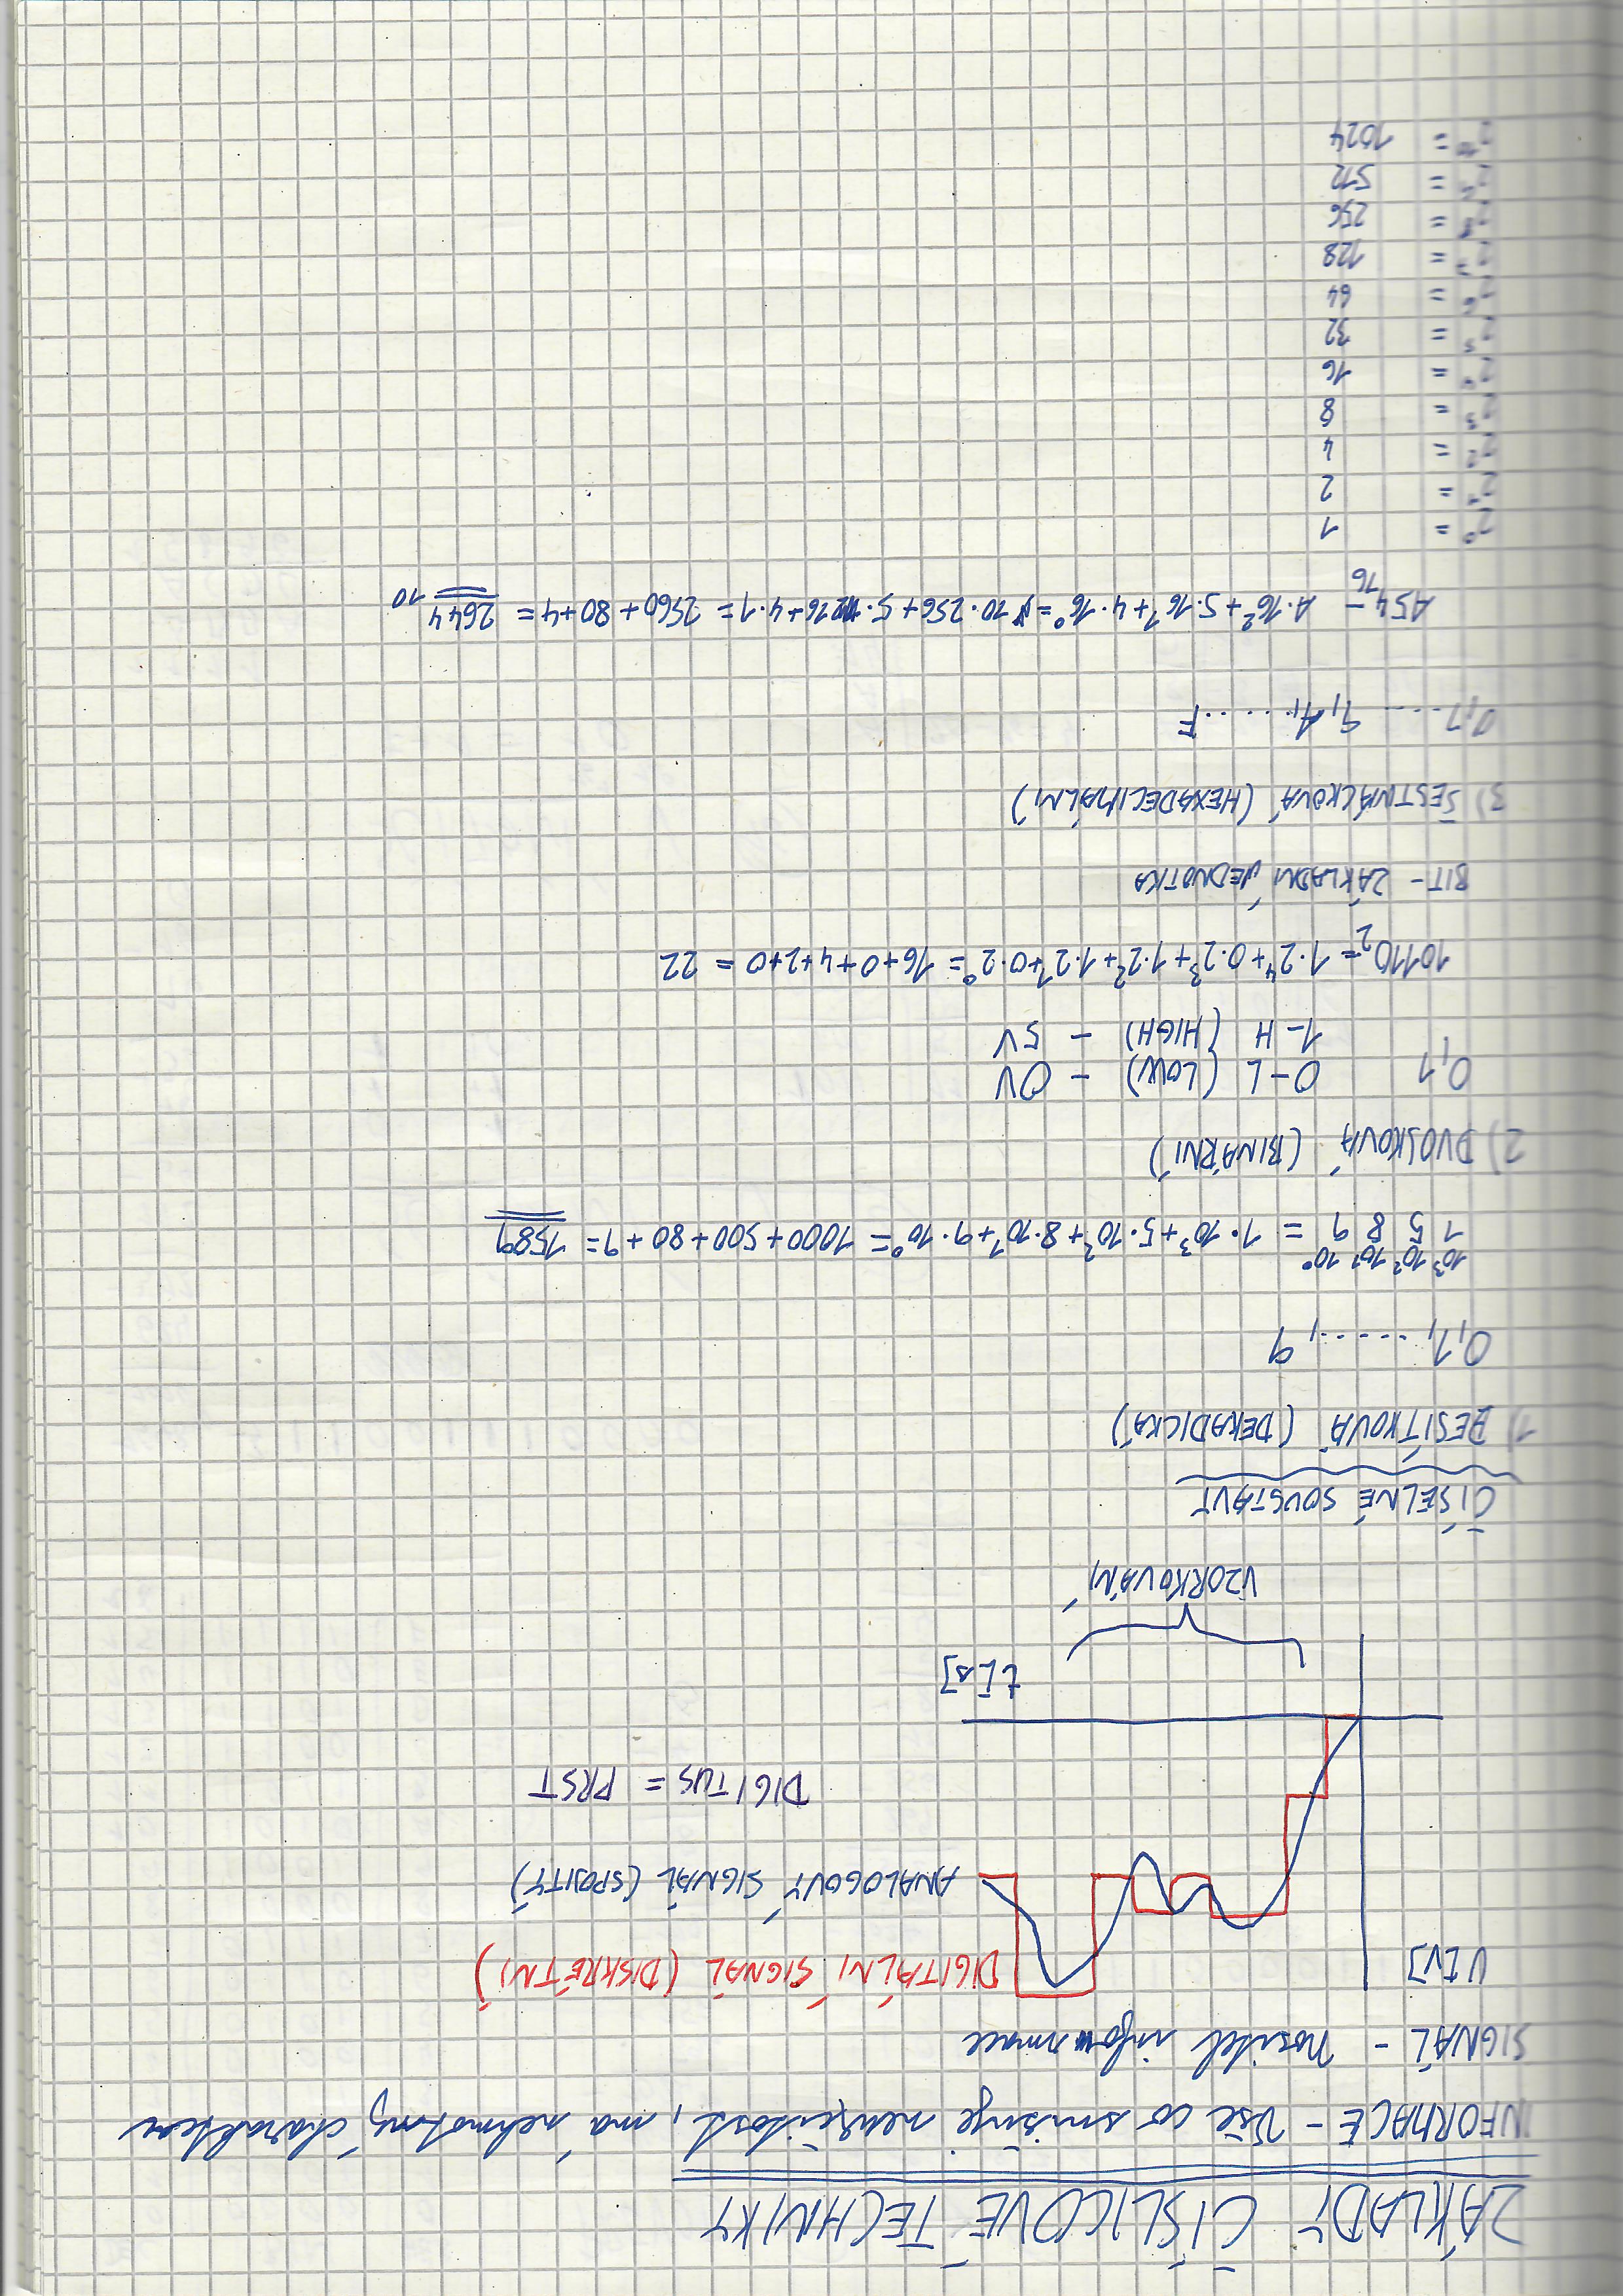 ZÁKLADY ČÍSLICOVÉ TECHNIKY
INFORMACE - Vše co snižuje neurčitost, má nehmotný charakter
SIGNÁL - Nositel informace
U[V]
DIGITÁLNÍ SIGNÁL (DISKRÉTNÍ)
ANALOGOVÝ SIGNÁL (SPOJITÝ)
DIGITUS = PRST
t[s]
VZORKOVÁNÍ
ČÍSELNÉ SOUSTAVY
1) DESÍTKOVÁ (DEKADICKÁ)
0,1, ......, 9
10³ 10² 10¹ 10⁰
1 5 8 9 = 1·10³+5·10²+8·10¹+9·10⁰= 1000+500+80+9= 1589
2) DVOJKOVÁ (BINÁRNÍ)
0,1 0-L (LOW) - 0V
1-H (HIGH) - 5V
10110₂=1·2⁴+0·2³+1·2²+1·2¹+0·2⁰= 16+0+4+2+0 = 22
BIT - ZÁKLADNÍ JEDNOTKA
3) ŠESTNÁCKOVÁ (HEXADECIMÁLNÍ)
0,1..... 9,A,......F
A54₁₆- A·16²+5·16¹+4·16⁰= 10·256+5·16+4·1= 2560+80+4= 2644₁₀
2⁰ = 1
2¹ = 2
2² = 4
2³ = 8
2⁴ = 16
2⁵ = 32
2⁶ = 64
2⁷ = 128
2⁸ = 256
2⁹ = 512
2¹⁰ = 1024